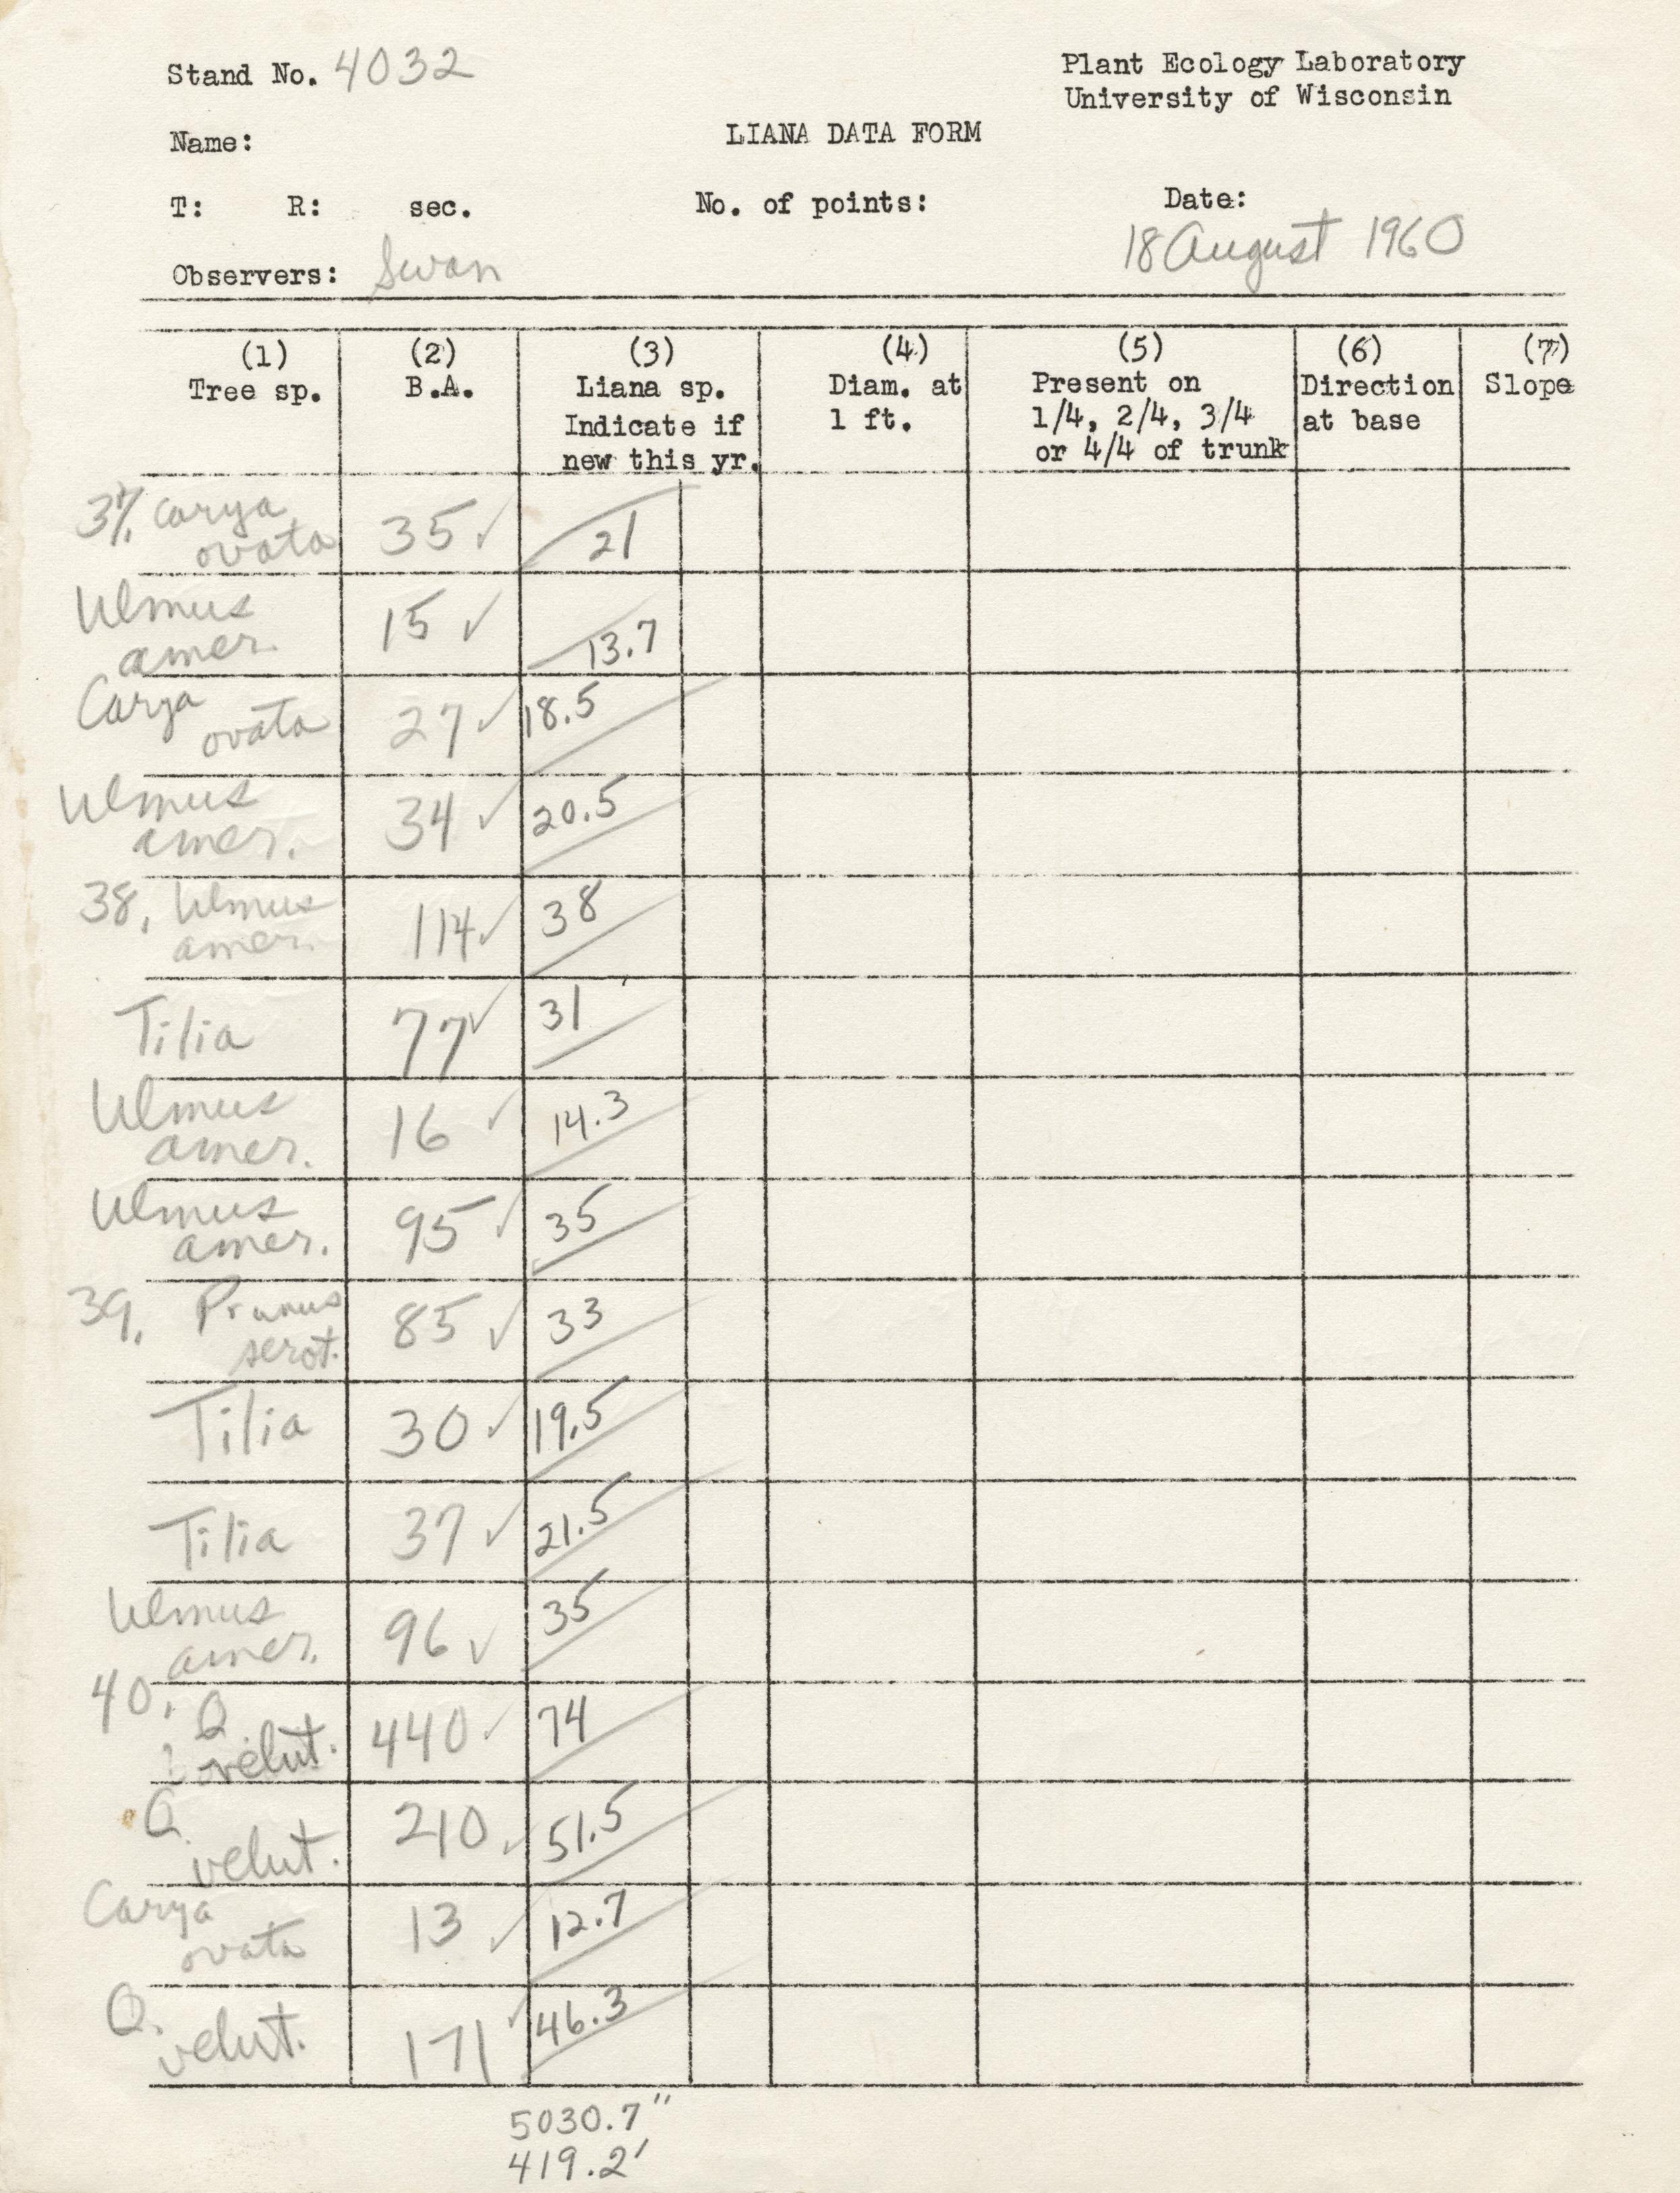 Stand No. 4032
Plant Ecology Laboratory
University of Wisconsin
Name:
LIANA DATA FORM
T: R: sec.
No. of points:
Date:
18 August 1960
Observers: Swan
(1) (2) (3) (4) (5) (6) (7)
Tree sp. B.A. Liana sp. Diam. at Present on Direction Slope
Indicate if 1 ft. 1/4, 2/4, 3/4 at base
new this yr. or 4/4 of trunk
37. Carya
ovata 35 ✓ 21
Ulmus
amer. 15 ✓ 13.7
Carya
ovata 27 ✓ 18.5
Ulmus
amer. 34 ✓ 20.5
38. Ulmus
amer. 114 ✓ 38
Tilia 77 ✓ 31
Ulmus
amer. 16 ✓ 14.3
Ulmus
amer. 95 ✓ 35
39. Prunus
serot. 85 ✓ 33
Tilia 30 ✓ 19.5
Tilia 37 ✓ 21.5
Ulmus
amer. 96 ✓ 35
40. Q
velut. 440 ✓ 74
Q.
velut. 210 ✓ 51.5
Carya
ovata 13 ✓ 12.7
Q.
velut. 171 ✓ 46.3
5030.7"
419.2'